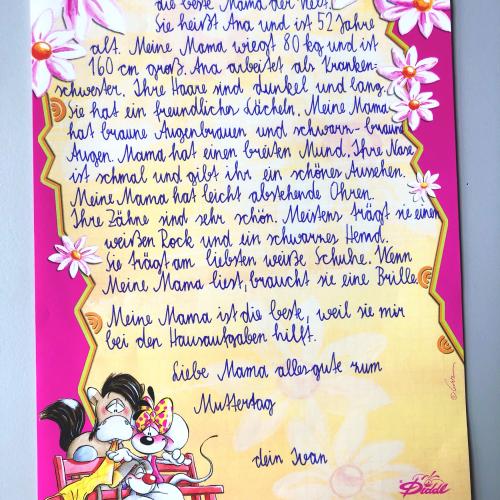 die beste Mama der Welt.
Sie heißt Ana und ist 52 Jahre
alt. Meine Mama wiegt 80 kg und ist
160 cm groß. Ana arbeitet als Kranken-
schwester. Ihre Haare sind dunkel und lang.
Sie hat ein freundliches Lächeln. Meine Mama
hat braune Augenbrauen und schwarz-braune
Augen. Mama hat einen breiten Mund. Ihre Nase
ist schmal und gibt ihr ein schönes Aussehen.
Meine Mama hat leicht abstehende Ohren.
Ihre Zähne sind sehr schön. Meistens trägt sie einen
weißen Rock und ein schwarzes Hemd.
Sie trägt am liebsten weiße Schuhe. Wenn
Meine Mama liest, braucht sie eine Brille.
Meine Mama ist die beste, weil sie mir
bei den Hausaufgaben hilft.
Liebe Mama alles gute zum
Muttertag
dein Ivan
Diddl